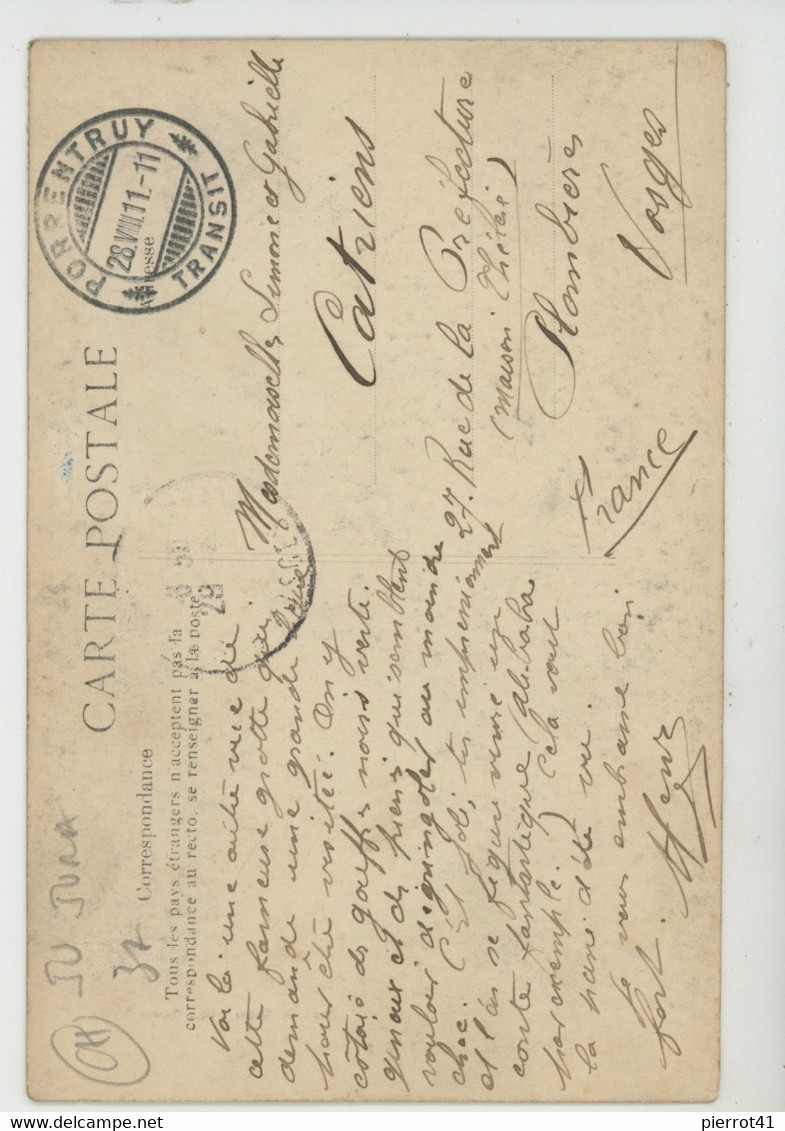 CARTE POSTALE
Correspondance
Tous les pays étrangers n'acceptent pas la
correspondance au recto, se renseigner à la poste
Adresse
PORRENTRUY
28.VIII.11.-11
TRANSIT
29
VOSGES
JU JURA
CH
Voilà une autre vue de
cette fameuse grotte qui
demande une grande heure
pour être visitée. On y
côtoie des gouffres noirs verts.
et des pierres qui semblent
vouloir dégringoler au moindre
choc. C'est joli, très impressionnant
et l'on se figure vivre un
conte fantastique (Alibaba
par exemple.) Cela vaut
la peine d'être vu.
Je vous embrasse bien
fort.
Mesdemoiselles Simone et Gabrielle
Catriens
27. Rue de la Préfecture
(Maison)
Plombières
Vosges
France
pierrot41